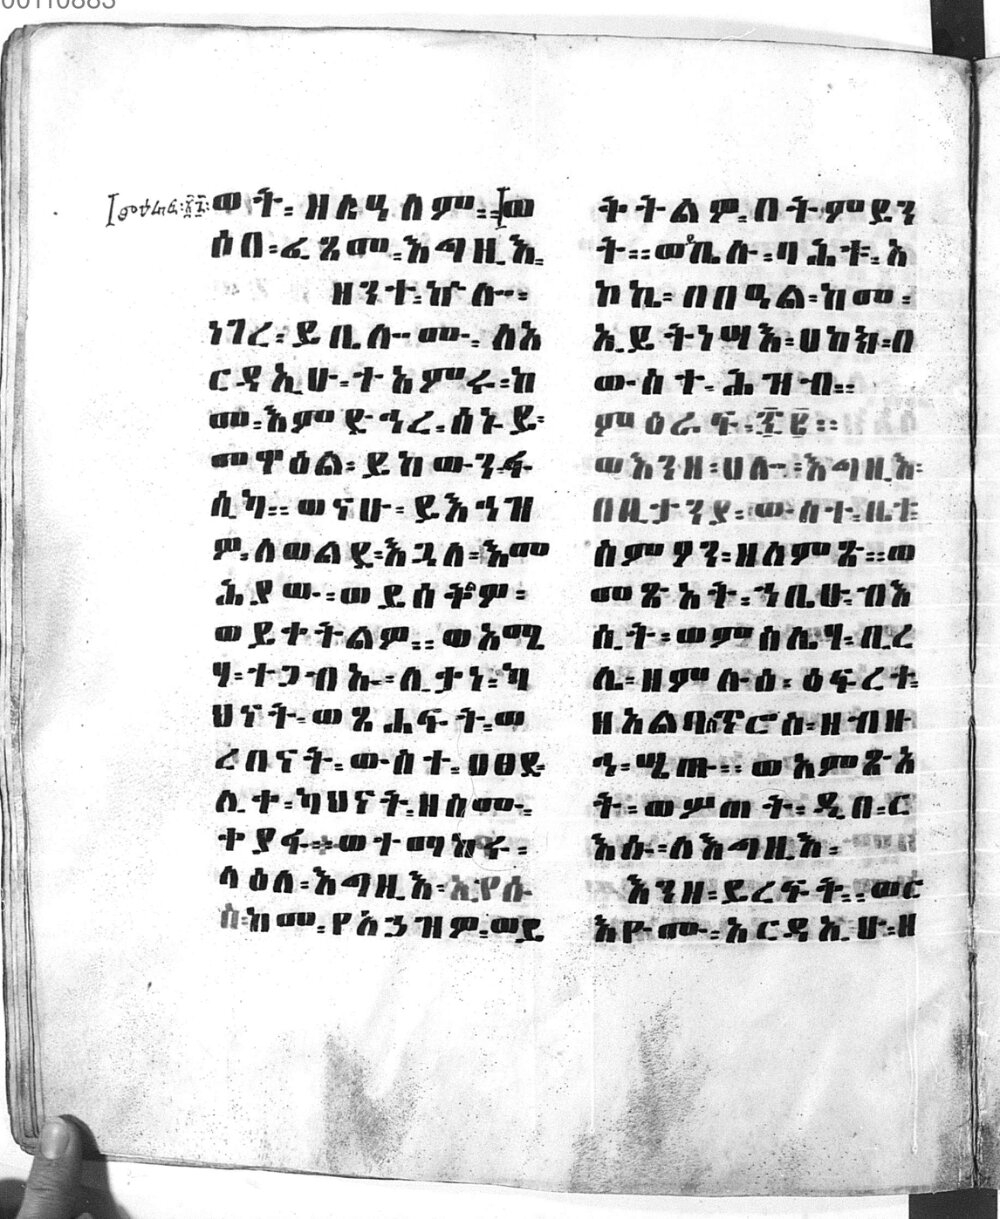 00110883
ምዕራፍ፡፷፯፡
ወት፡ ዘለዓለም፡፡ ወ
ሰበ፡ፈጸመ፡እግዚእ፡
ዘንተ፡ኵሎ፡
ነገረ፡ይቤሎሙ፡ ለአ
ርዳኢሁ፡ተአምሩ፡ከ
መ፡እምድኅረ፡ሰኑይ፡
መዋዕል፡ይከውን፡ፋ
ሲካ፡፡ወናሁ፡ይእኅዝ
ዎ፡ለወልደ፡እጓለ፡እመ
ሕያው፡ወይሰቅልዎ፡
ወይተትልዎ፡፡ወአሜ
ሃ፡ተጋብኡ፡ሊታነ፡ካ
ህናት፡ወጸሐፍት፡ወ
ረበናት፡ውስተ፡ዐፀደ፡
ሊተ፡ካህናት፡ዘስሙ፡
ተያፋ፡፡ወተማከሩ፡
ላዕለ፡እግዚእ፡ኢየሱ
ስ፡ከመ፡የአኃዝዎ፡ወይ
ትትልዎ፡በትምይን
ት፡፡ወይቤሉ፡ባሕቱ፡አ
ኮኬ፡በበዓል፡ከመ፡
ኢይትነሣእ፡ሀከክ፡በ
ውስተ፡ሕዝብ፡፡
ምዕራፍ፡፷፪፡፡
ወእንዘ፡ሀሎ፡እግዚእ፡
በቢታንያ፡ውስተ፡ቤተ፡
ስምዖን፡ዘለምጽ፡፡ወ
መጽአት፡ኀቤሁ፡ብእ
ሲት፡ወምስሌሃ፡ቢረ
ሌ፡ዘምሉዕ፡ዕፍረተ፡
ዘአልባስጥሮስ፡ዘብዙ
ኅ፡ሤጡ፡፡ወአምጽአ
ት፡ወሦጠት፡ዲበ፡ር
እሱ፡ለእግዚእ፡
እንዘ፡ይረፍት፡፡ወር
እዮሙ፡አርዳኢሁ፡ዘ